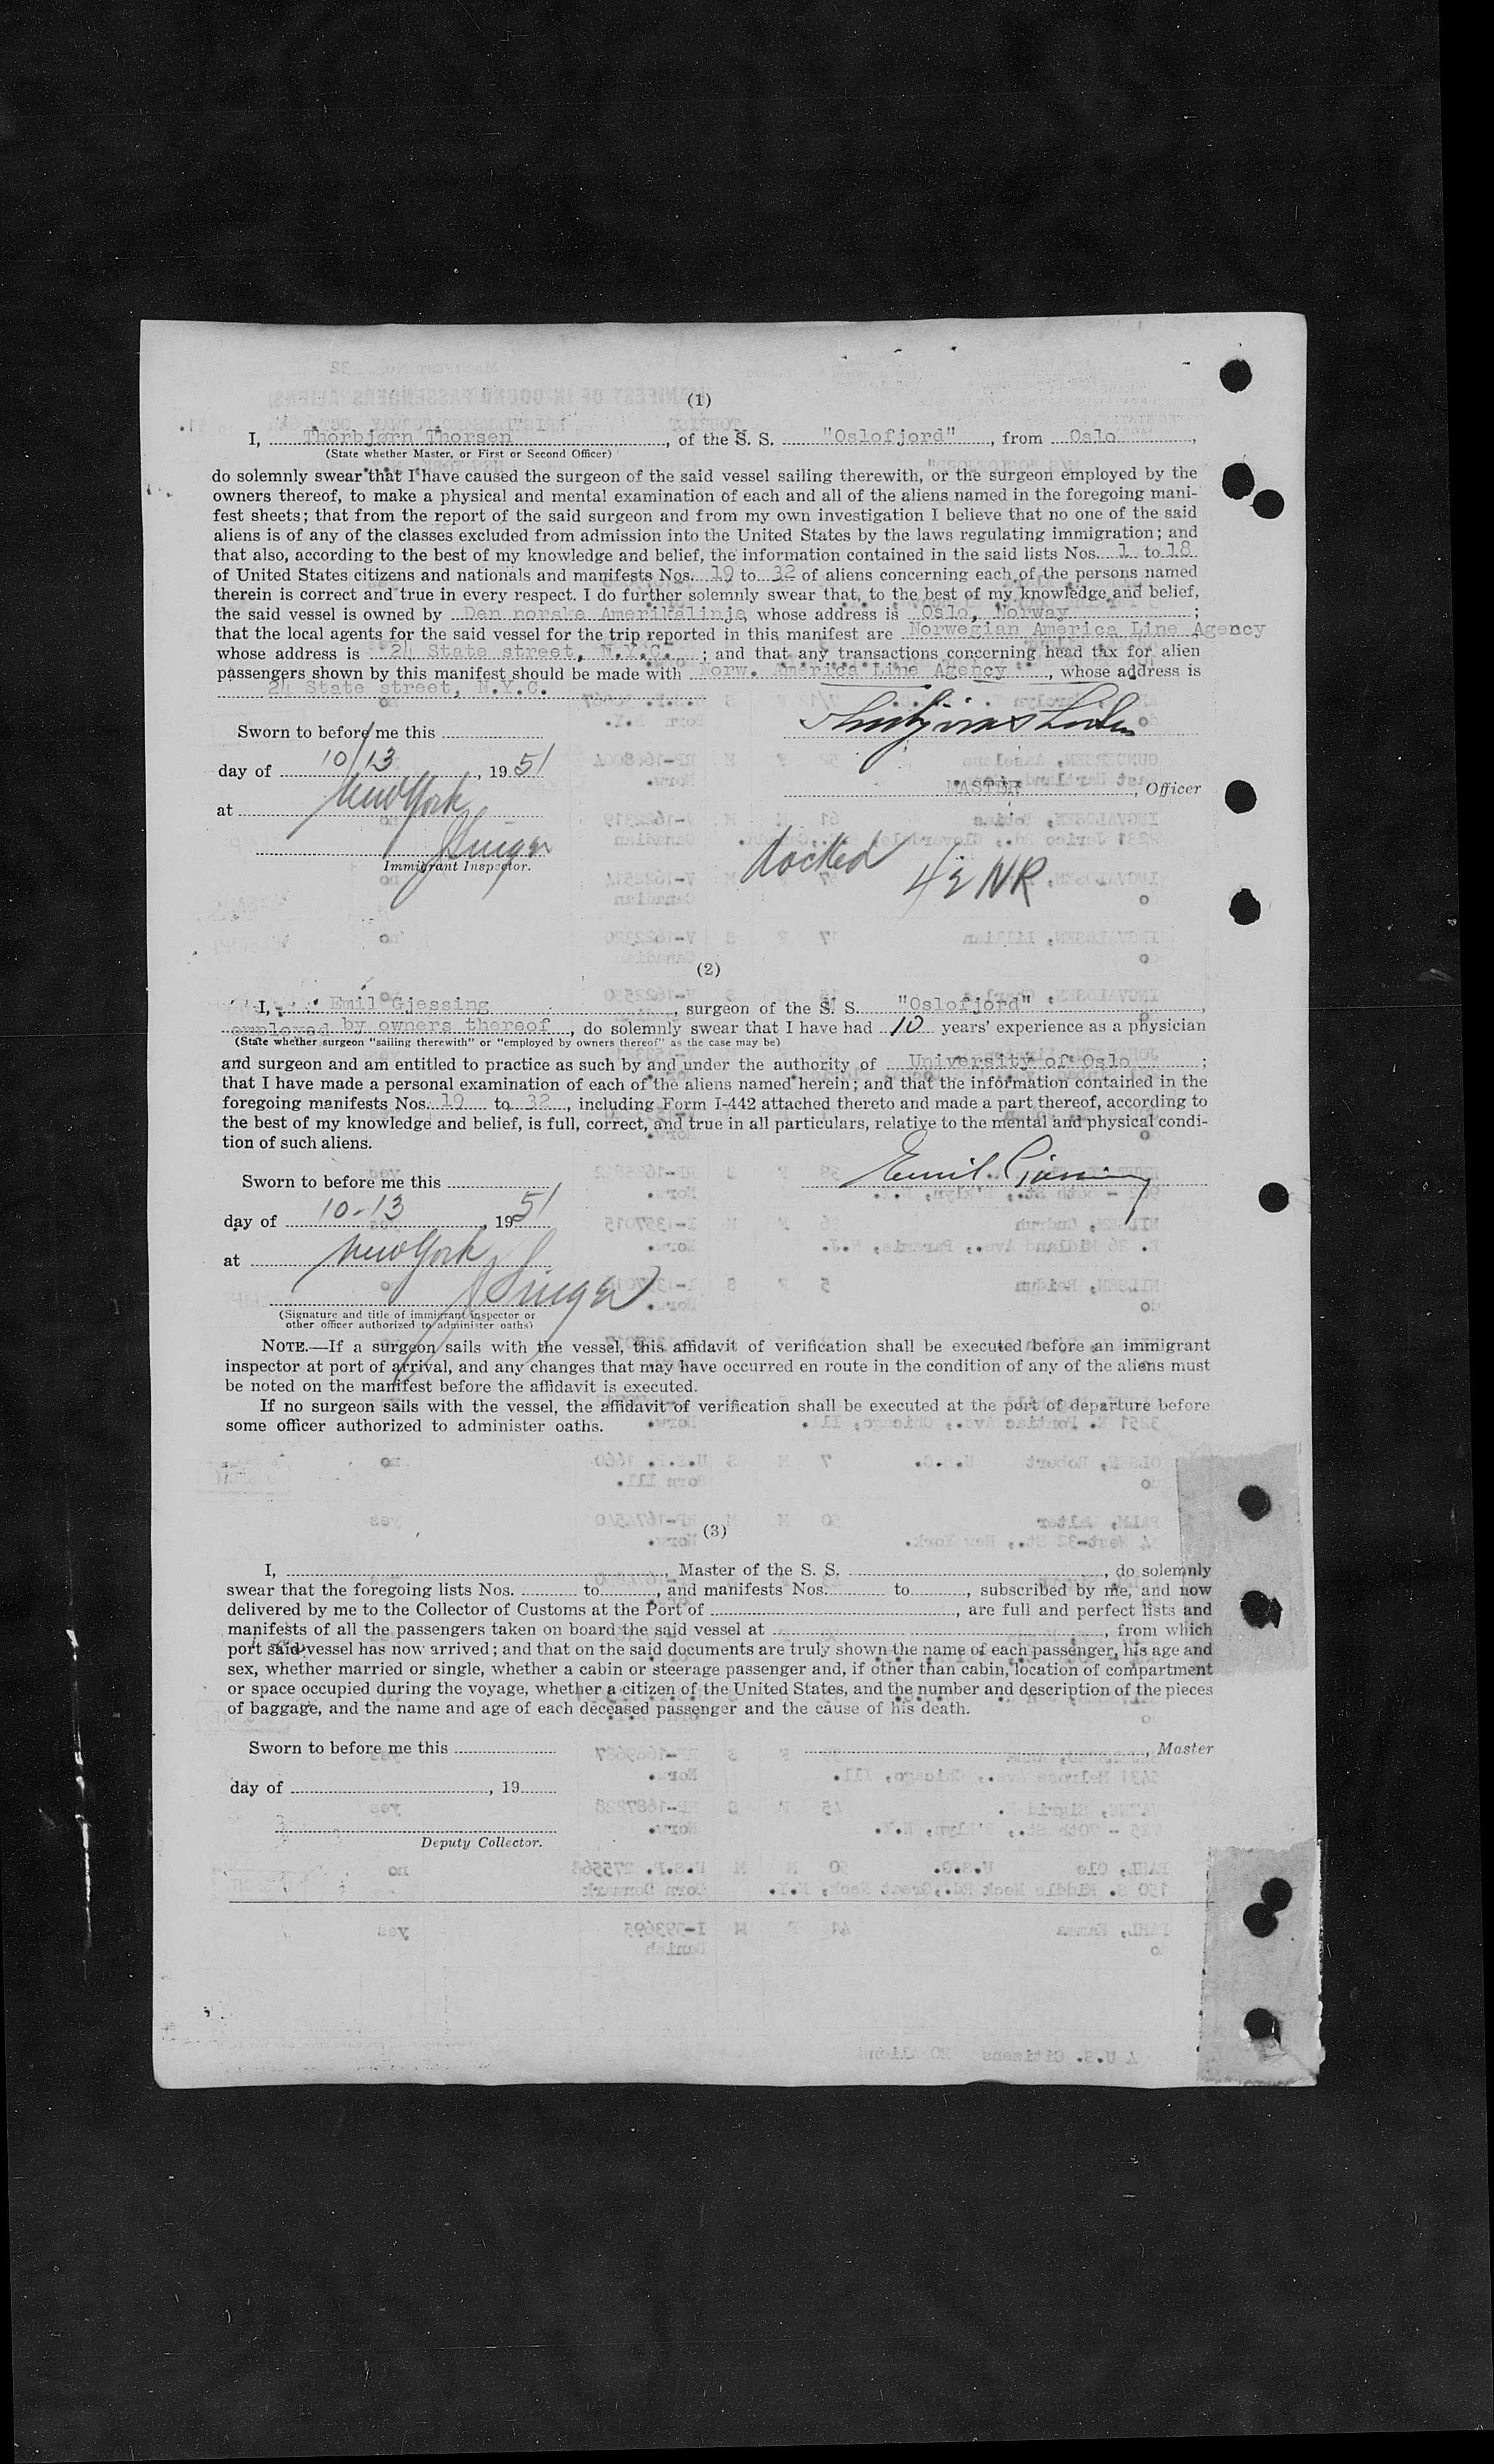 (1)
I, Thorbjørn Thorsen, of the S. S. "Oslofjord", from Oslo,
(State whether Master, or First or Second Officer)
do solemnly swear that I have caused the surgeon of the said vessel sailing therewith, or the surgeon employed by the
owners thereof, to make a physical and mental examination of each and all of the aliens named in the foregoing mani-
fest sheets; that from the report of the said surgeon and from my own investigation I believe that no one of the said
aliens is of any of the classes excluded from admission into the United States by the laws regulating immigration; and
that also, according to the best of my knowledge and belief, the information contained in the said lists Nos. 1 to 18
of United States citizens and nationals and manifests Nos. 19 to 32 of aliens concerning each of the persons named
therein is correct and true in every respect. I do further solemnly swear that, to the best of my knowledge and belief,
the said vessel is owned by Den norske Amerikalinje, whose address is Oslo, Norway ;
that the local agents for the said vessel for the trip reported in this manifest are Norwegian America Line Agency
whose address is 24 State street, N.Y.C. ; and that any transactions concerning head tax for alien
passengers shown by this manifest should be made with Norw. America Line Agency, whose address is
24 State street, N.Y.C.
Sworn to before me this
day of 10/13, 1951
MASTER, Officer
at New York
Singer
Immigrant Inspector.
docked 4½ NR
(2)
I, Emil Gjessing, surgeon of the S. S. "Oslofjord",
employed by owners thereof, do solemnly swear that I have had 10 years' experience as a physician
(State whether surgeon "sailing therewith" or "employed by owners thereof" as the case may be)
and surgeon and am entitled to practice as such by and under the authority of University of Oslo ;
that I have made a personal examination of each of the aliens named herein; and that the information contained in the
foregoing manifests Nos. 19 to 32, including Form I-442 attached thereto and made a part thereof, according to
the best of my knowledge and belief, is full, correct, and true in all particulars, relative to the mental and physical condi-
tion of such aliens.
Emil Gjessing
Sworn to before me this
day of 10-13, 1951
at New York
Singer
(Signature and title of immigrant inspector or
other officer authorized to administer oaths)
NOTE.—If a surgeon sails with the vessel, this affidavit of verification shall be executed before an immigrant
inspector at port of arrival, and any changes that may have occurred en route in the condition of any of the aliens must
be noted on the manifest before the affidavit is executed.
If no surgeon sails with the vessel, the affidavit of verification shall be executed at the port of departure before
some officer authorized to administer oaths.
(3)
I, , Master of the S. S. , do solemnly
swear that the foregoing lists Nos. to , and manifests Nos. to , subscribed by me, and now
delivered by me to the Collector of Customs at the Port of , are full and perfect lists and
manifests of all the passengers taken on board the said vessel at , from which
port said vessel has now arrived; and that on the said documents are truly shown the name of each passenger, his age and
sex, whether married or single, whether a cabin or steerage passenger and, if other than cabin, location of compartment
or space occupied during the voyage, whether a citizen of the United States, and the number and description of the pieces
of baggage, and the name and age of each deceased passenger and the cause of his death.
Sworn to before me this
, Master
day of , 19
Deputy Collector.